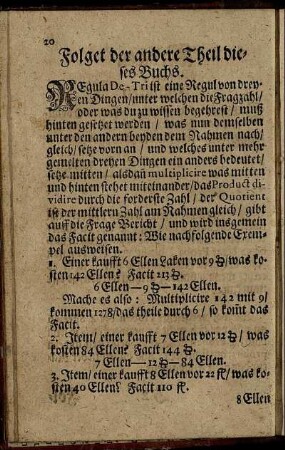 20
Folget der andere Theil die-
ses Buchs.
REgula De-Tri ist eine Regul von drey-
en Dingen/unter welchen die Fragzahl/
oder was du zu wissen begehrest/ muß
hinten gesetzet werden / was nun demselben
unter den andern beyden dem Nahmen nach/
gleich/ setze vorn an / und welches unter mehr
gemelten dreyen Dingen ein anders bedeutet/
setze mitten / alsdañ multiplicire was mitten
und hinten stehet miteinander/das Product di-
vidire durch die forderste Zahl / der Quotient
ist der mittlern Zahl am Nahmen gleich / gibt
auff die Frage Bericht / und wird insgemein
das Facit genannt: Wie nachfolgende Exem-
pel ausweisen.
1. Einer kaufft 6 Ellen Laken vor 9 / was ko-
sten 142 Ellen? Facit 213
6 Ellen—9 —142 Ellen.
Mache es also: Multiplicire 142 mit 9/
kommen 1278/das theile durch 6 / so kom̃t das
Facit.
2. Item/ einer kaufft 7 Ellen vor 12 / was
kosten 84 Ellen? Facit 144
7 Ellen—12 —84 Ellen.
3. Item/ einer kaufft 8 Ellen vor 22 fl/ was ko-
sten 40 Ellen? Facit 110 fl.
8 Ellen